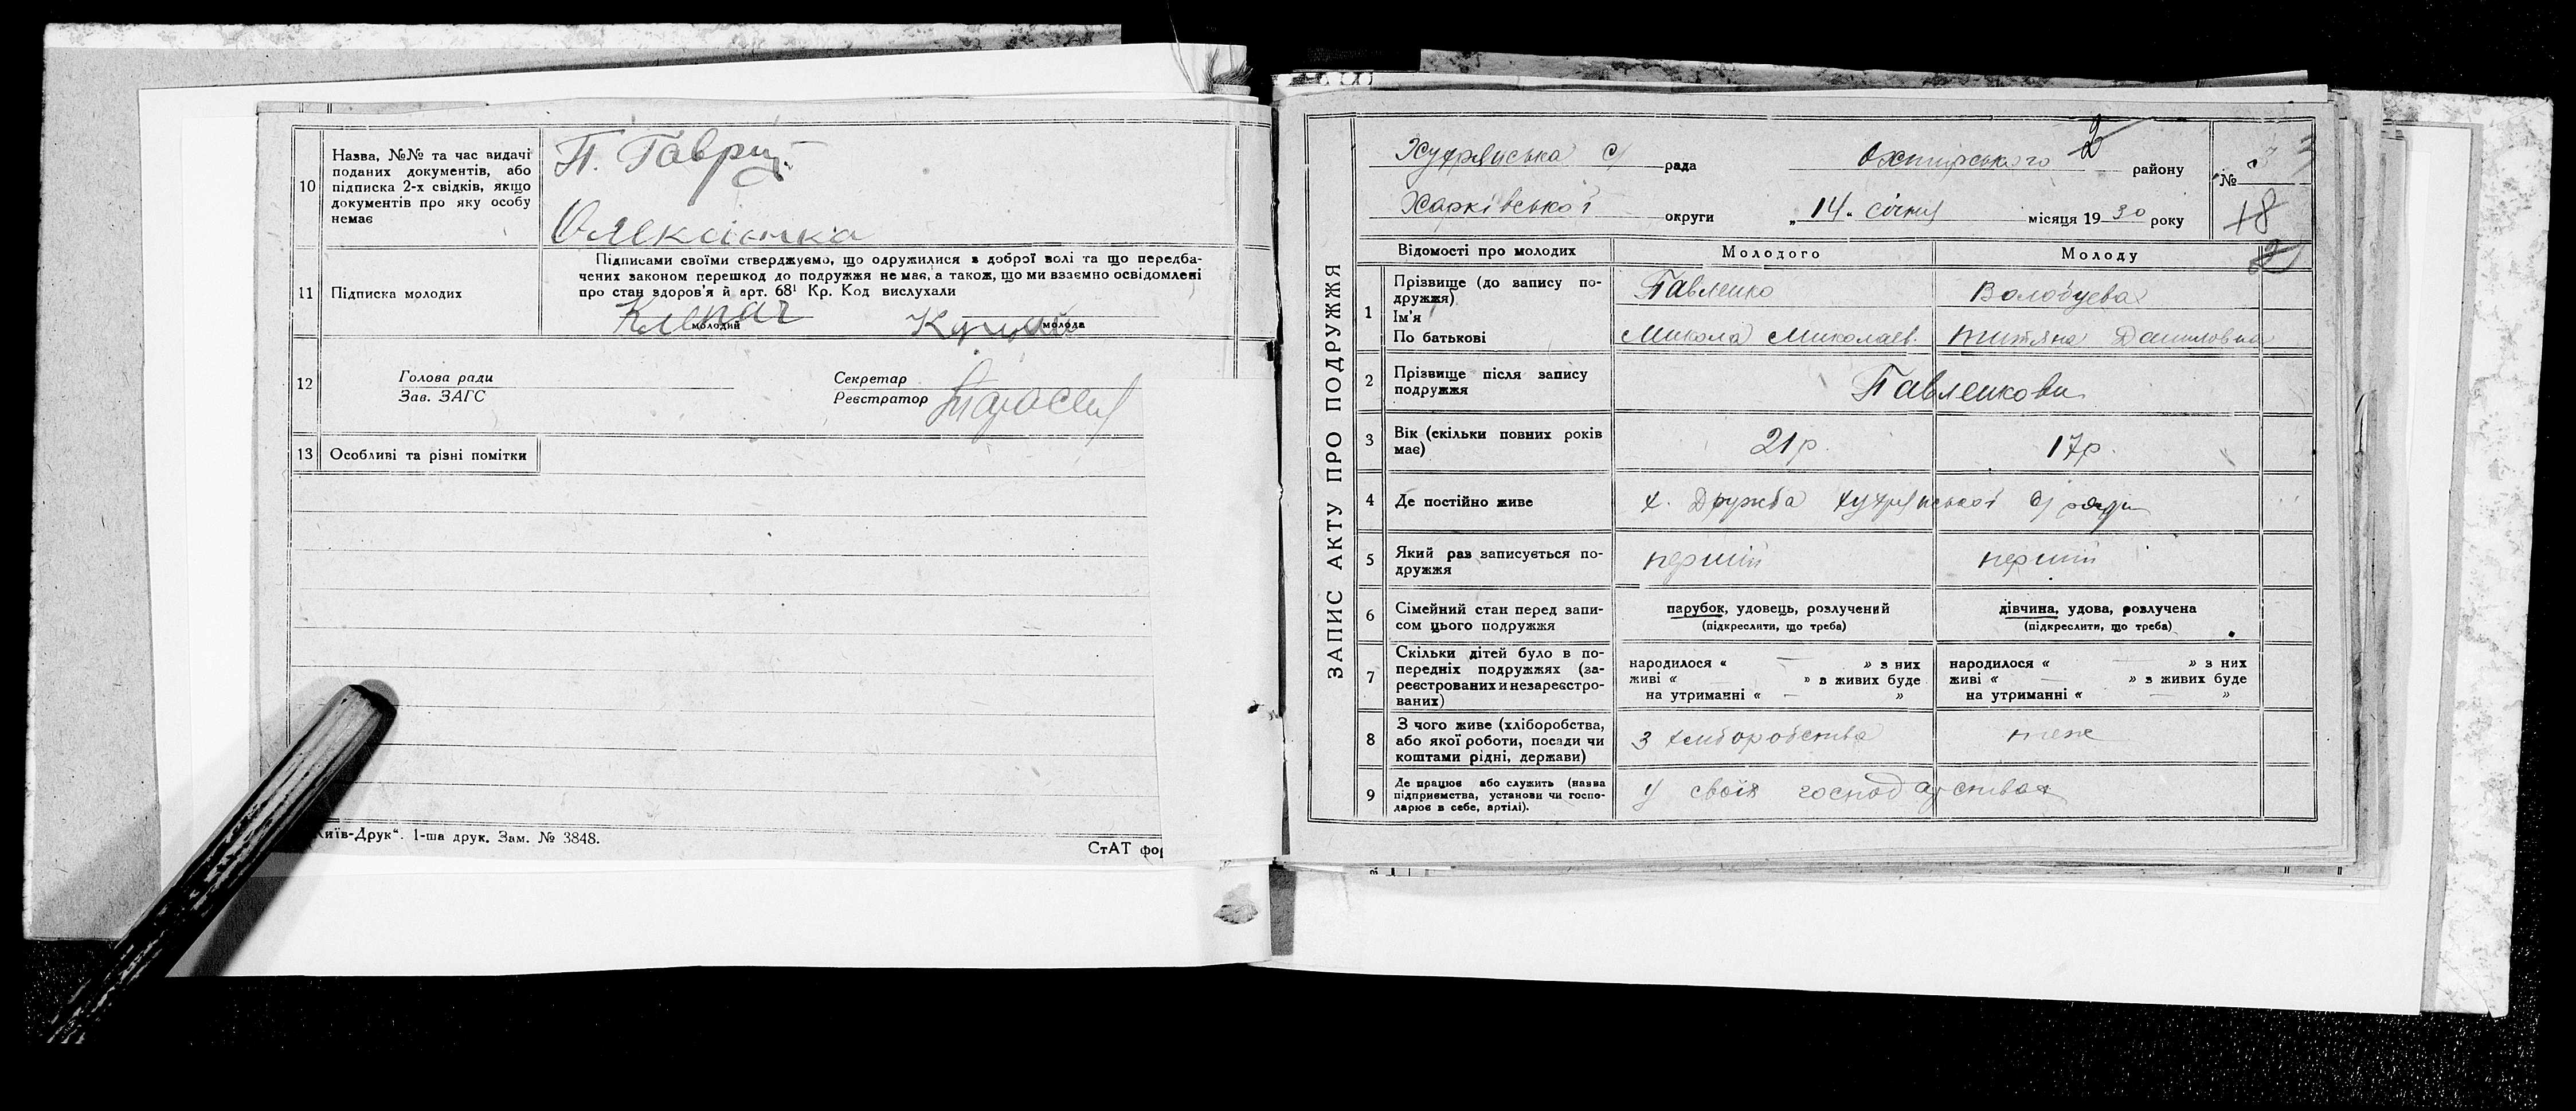 10
Назва, №№ та час видачі
поданих документів, або
підписка 2-х свідків, якщо
документів про яку особу
немає
П. Гаврищ
Олексієнко
11
Підписка молодих
Підписами своїми стверджуємо, що одружилися з доброї волі та що передба-
чених законом перешкод до подружжя немає, а також, що ми взаємно освідомлені
про стан здоров'я й арт. 68¹ Кр. Код вислухали
Клепач
молодий
молода
12
Голова ради
Зав. ЗАГС
Секретар
Реєстратор
13
Особливі та різні помітки
иїв-Друк“. 1-ша друк. Зам. № 3848.
СтАТ фор
ЗАПИС АКТУ ПРО ПОДРУЖЖЯ
Хухрянська с/ рада Охтирського району
2
№ 3
3
Харківської округи „14“ січня місяця 1930 року
18
Відомості про молодих
Молодого
Молоду
2
1
Прізвище (до запису по-
дружжя)
Ім'я
По батькові
Павленко
Волобуева
Микола Миколаев.
Титяна Даниловна
2
Прізвище після запису
подружжя
Павленкови
3
Вік (скільки повних років
має)
21р.
17р.
4
Де постійно живе
х. Дружба Хухрянської с/ ради
5
Який раз записується по-
дружжя
перший
перший
6
Сімейний стан перед запи-
сом цього подружжя
парубок, удовець, розлучений
(підкреслити, що треба)
дівчина, удова, розлучена
(підкреслити, що треба)
7
Скільки дітей було в по-
передніх подружжях (за-
реєстрованих и незареєстро-
ваних)
народилося « — » з них
живі « — » в живих буде
на утриманні « — »
народилося « — » з них
живі « — » в живих буде
на утриманні « — »
8
З чого живе (хліборобства,
або якої роботи, посади чи
коштами рідні, держави)
З хліборобства
теж
9
Де працює або служить (назва
підприємства, установи чи госпо-
дарює в себе, артілі).
У своїх господарствах